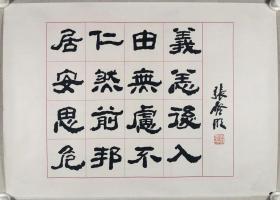 居仁由義
安然無恙
思前慮後
危邦不入
張